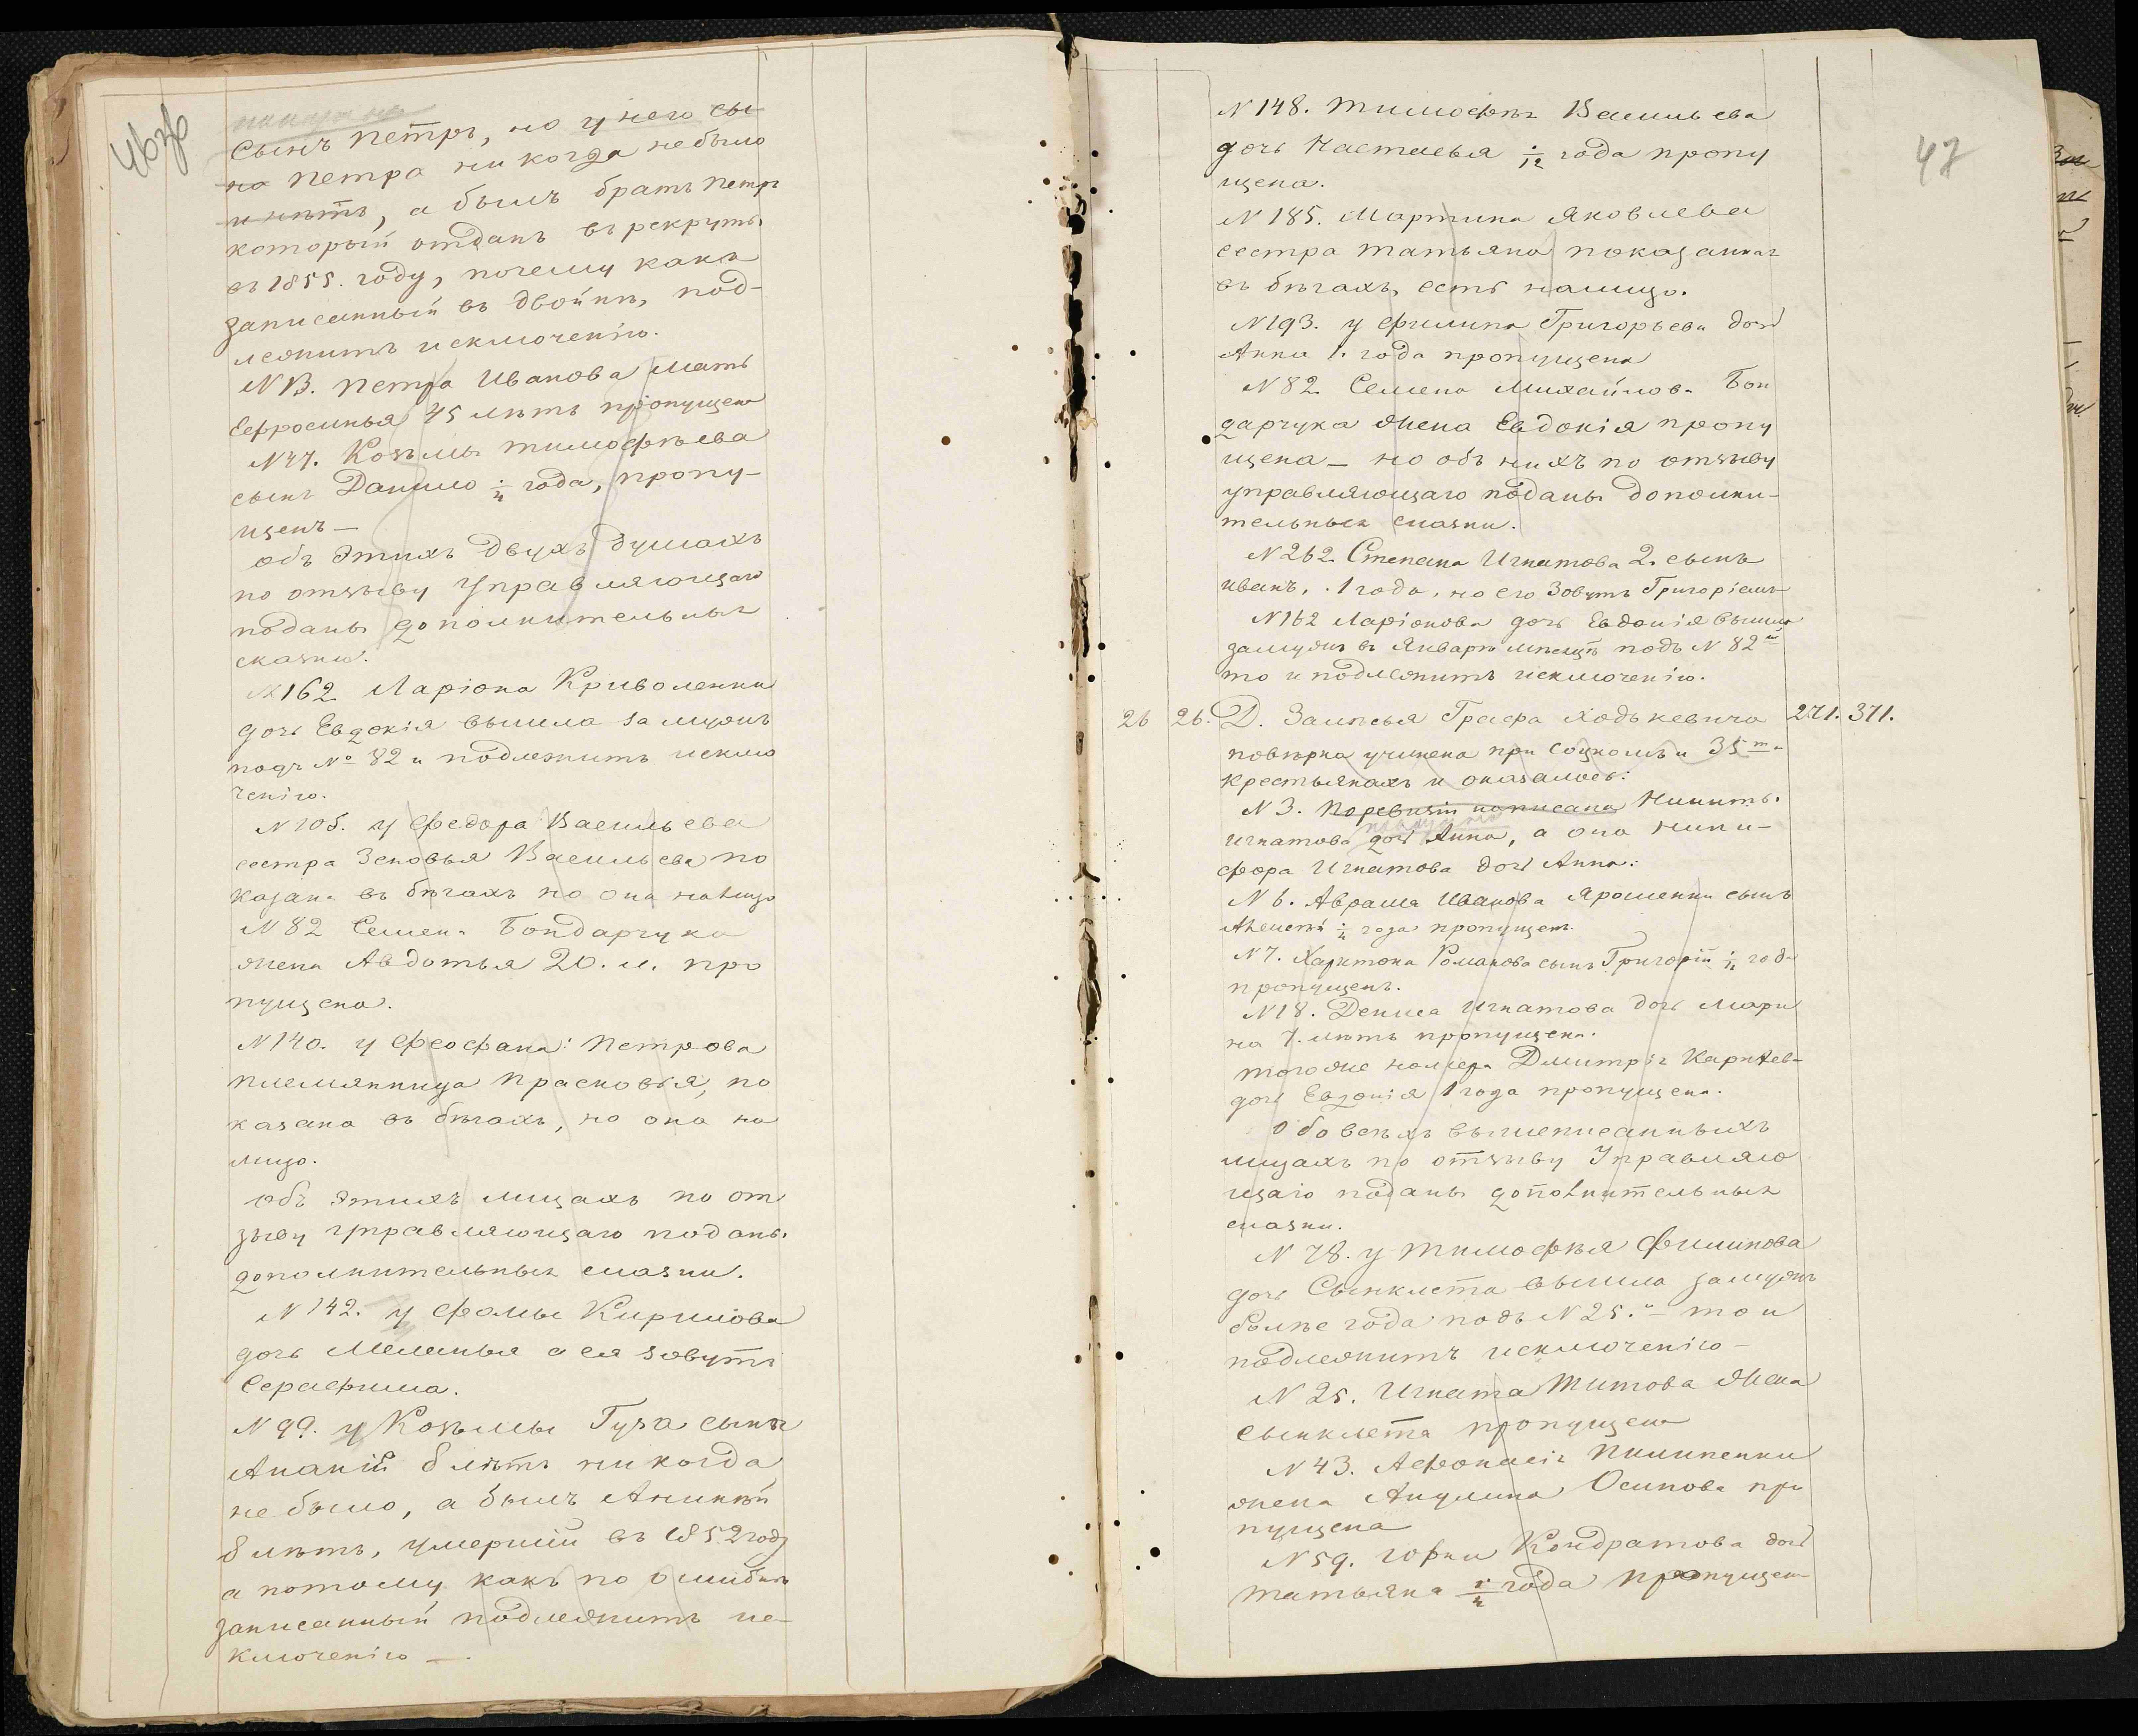 46 зв
сынъ Петръ, но у него сы
на Петра никогда небыло
и нѣтъ, а былъ братъ Петръ
который отданъ въ рекруты
въ 1855. году, почему какъ
записанный въ двойнѣ, под-
лежитъ исключенію.
N 13. Петра Иванова мать
Ефросинья 45 лѣтъ пропущена
N 47. Козьмы Тимофѣева
сынъ Данило года, пропу-
щенъ —
объ этихъ двухъ душахъ
по отзыву Управляющаго
поданы дополнительныя
сказки.
N 162 Ларіона Криволенки
дочь Евдокія вышла замужъ
подъ № 82 и подлежитъ исклю
ченію.
N 105. у Федора Васильева
сестра Зеновья Васильева по
казана въ бѣгахъ но она налицо
N 82 Семена Бондарчука
жена Авдотья 20. л. про
пущена.
N 140. у Феофана Петрова
племянница Прасковья, по
казана въ бѣгахъ, но она на
лицо.
объ этихъ лицахъ по от
зыву управляющаго поданы
дополнительныя сказки.
N 142. у Фомы Кирилова
дочь Меланья а ея зовутъ
Серафима.
N 99. у Козьмы Гуза сынъ
Ананій 8 лѣтъ никогда
не было, а былъ Аникій
8 лѣтъ, умершій въ 1852 году
а потому какъ по ошибкѣ
записанный подлежитъ ис-
ключенію —.
47
N 148. Тимофѣя Васильева
дочь Настасья 1/12 года пропу
щена.
N 185. Мартина Яковлева
сестра Татьяна показанная
въ бѣгахъ, есть налицо.
N 193. у Филипа Григорьева дочь
Анна 1. года пропущена
N 82. Семена Михайлова Бон
дарчука жена Евдокія пропу
щена — но объ нихъ по отзыву
управляющаго поданы дополни-
тельныя сказки.
N 262 Степана Игнатова 2. сынъ
Иванъ, 1 года, но его зовутъ Григоріемъ
N 162 Ларіонова дочь Евдокія вышла
замужъ въ Январѣ мѣсяцѣ подъ N 82й
то и подлежитъ исключенію.
26 26. Д. Залисья Графа Ходькевича 271. 371.
повѣрка учинена при Соцкомъ и 35ти
крестьянахъ и оказалось:
N 3. По ревизіи написана Никиты
Игнатова дочь Анна, а она Ники-
фора Игнатова дочь Анна.
N 6. Аврама Иванова Яроменки сынъ
Алексѣй года пропущенъ.
N 7. Харитона Романова сынъ Григорій года
пропущенъ.
N 18. Дениса Игнатова дочь Мари
на 7. лѣтъ пропущена.
тогоже номера Дмитрія
дочь Евдокія 1 года пропущена.
обо всѣхъ вышеписанныхъ
лицахъ по отзыву Управляю
щаго поданы дополнительныя
сказки.
N 78. у Тимофѣя Филипова
дочь Сынклета вышла замужъ
болѣе года подъ N 25.й то и
подлежитъ исключенію —
N 25. Игната Титова жена
Сынклета пропущена
N 43. Афонасія Пилипенки
жена Акулина Осипова про
пущена
N 59. Юфки Кондратова дочь
Татьяна года пропущена